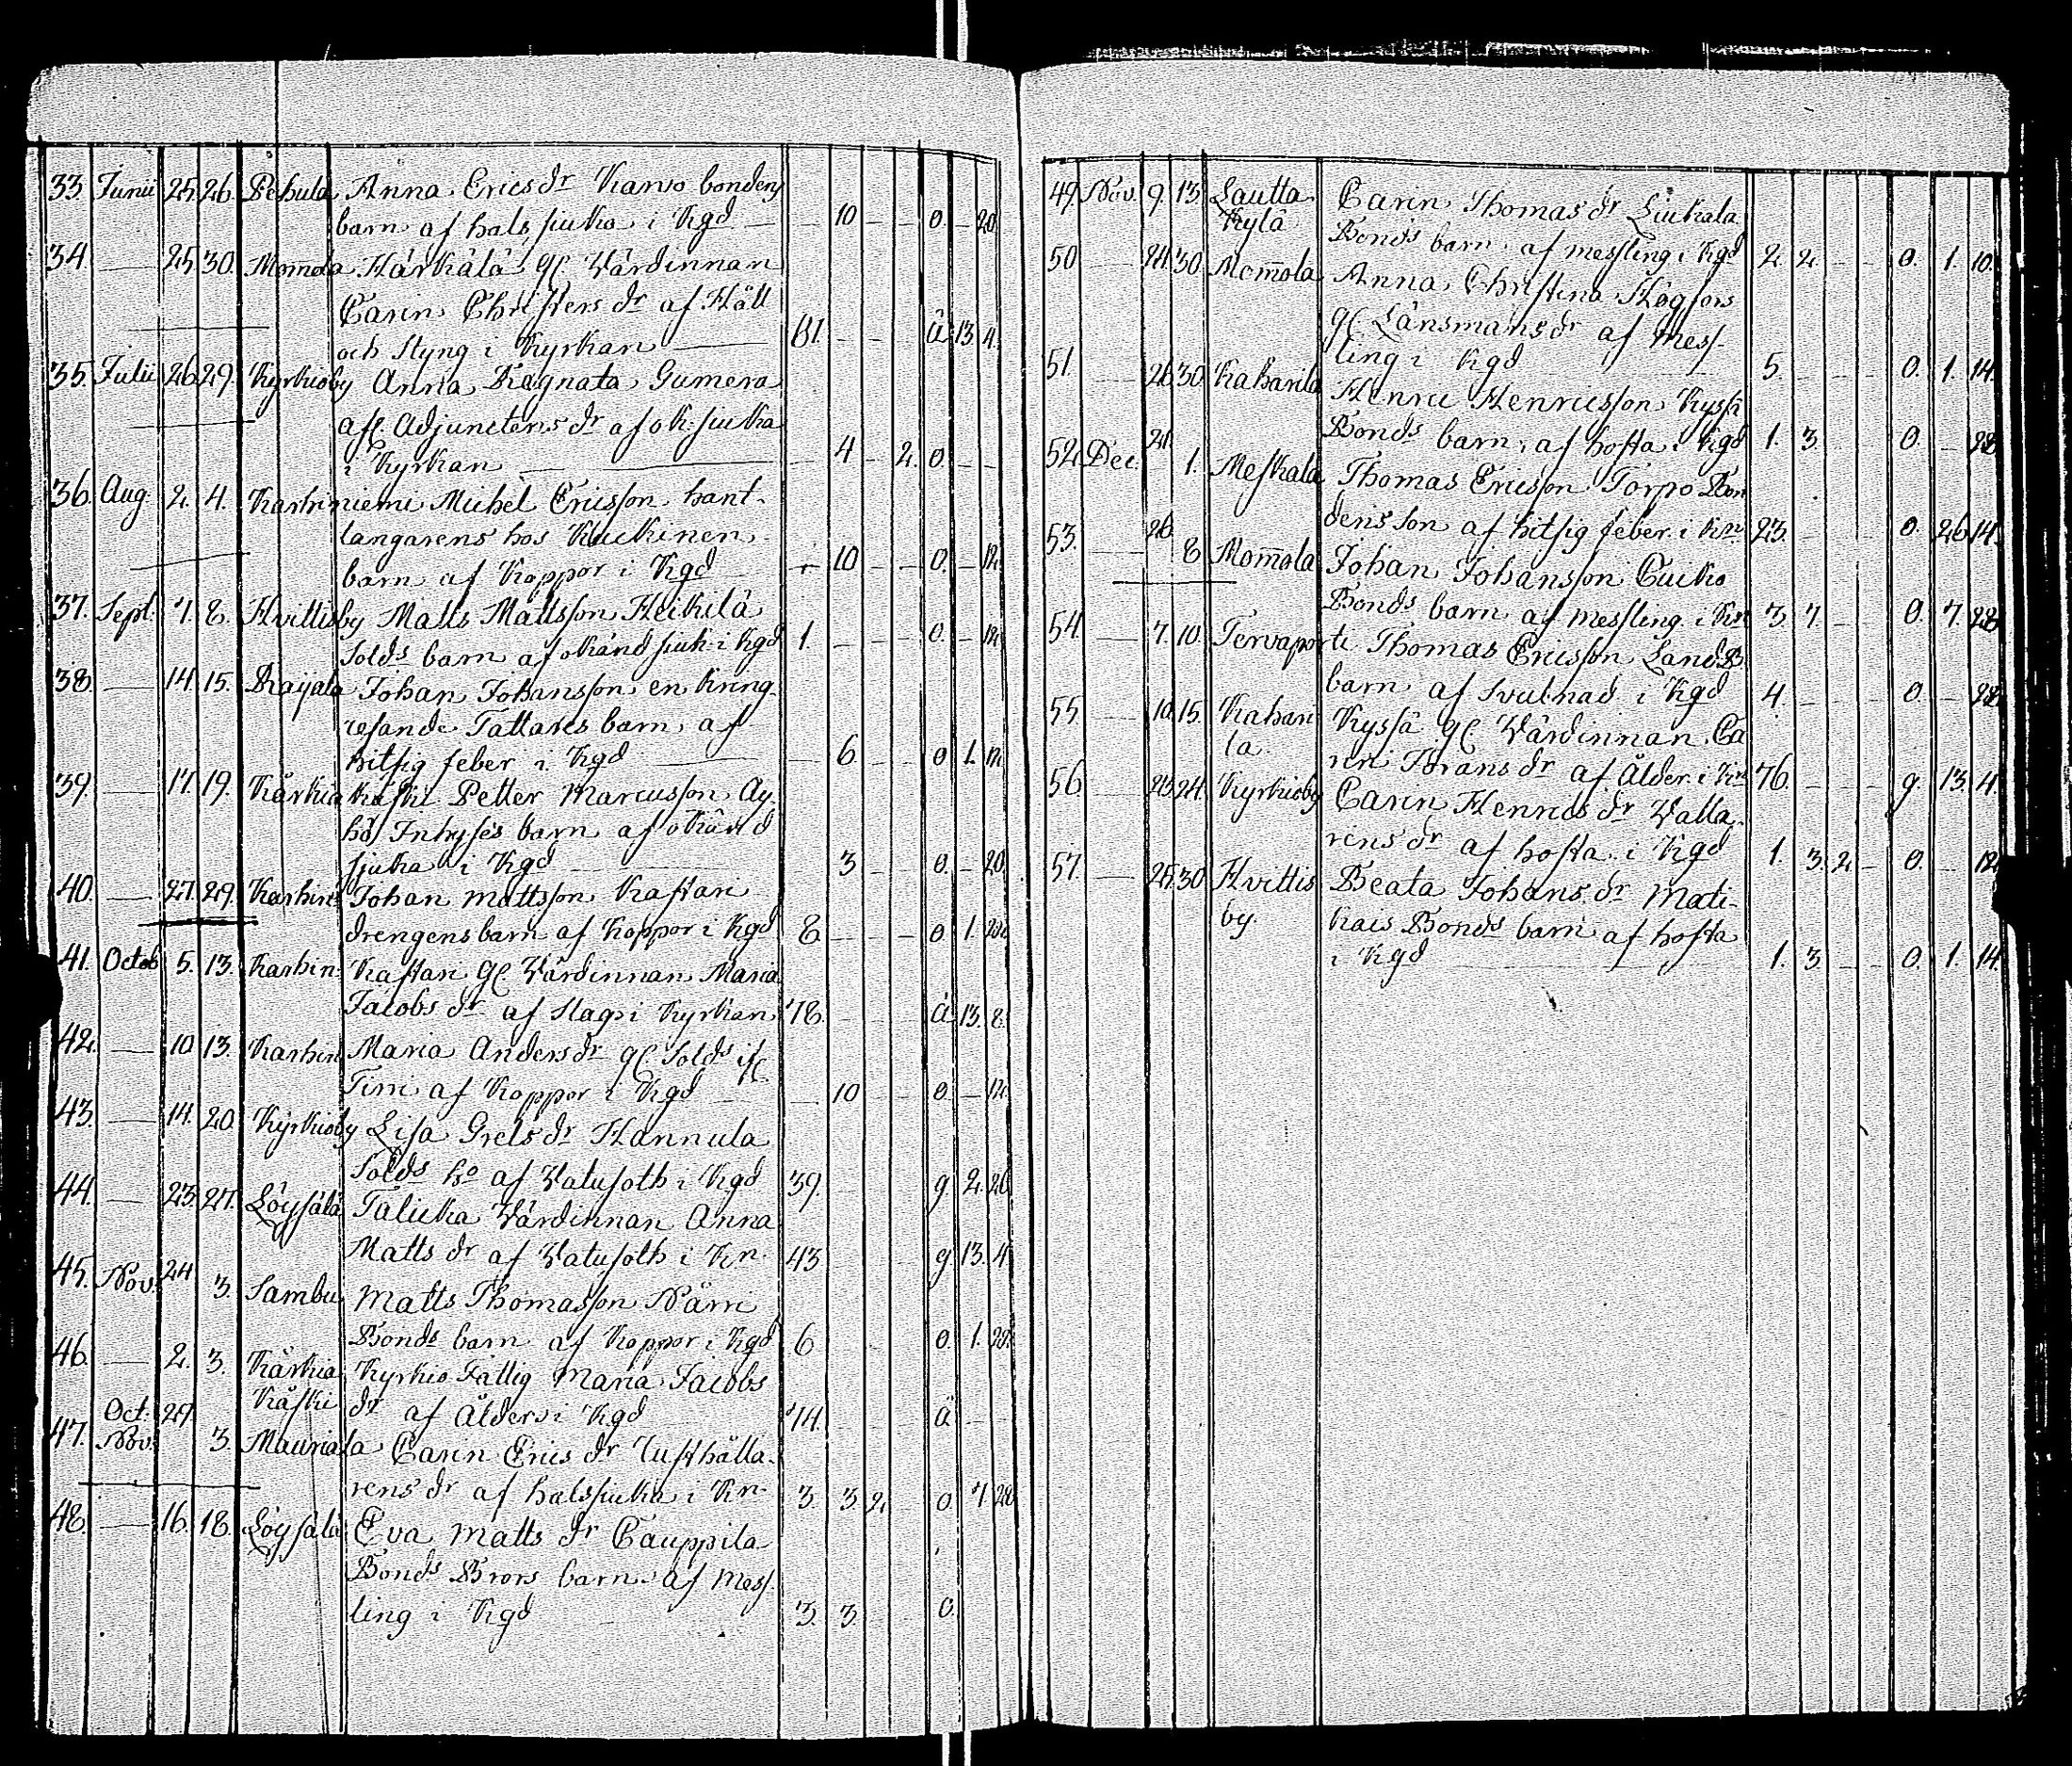 33. Junii 25. 26. Pehula Anna Erics dr Karvo bondens
barn af hals sjuka i Kgd — 10 — — o. — 20.
34. — 25 30. Mom̄ola Härkälä gl. Värdinnan
Carin Christers dr af Håll
och Styng i Kyrkan — 81. — — — å 13. 4.
35. Julii 26 29. Kyrkioby Anna Ragnata Gumera
afl. Adjunctens dr af ok: sjuka
i Kyrkan — — 4 — 2. o. — —
36. Aug. 2. 4. Karhiniemi Michel Ericsson hant-
langarens hos Kuckinen
barn af Koppor i Kgd — 10 — — o. — 12.
37. Sept. 7. 8. Hvittisby Matts Mattsson Heikilä
Solds barn af okänd siuk. i Kgd 1. — — — o. — 12.
38. — 14. 15. Raijala Johan Johansson en kring-
resande Tattares barn af
hitsig feber i Kgd — — 6. — — o 1. 12.
39. — 17. 19. Kärkia Käski Petter Marcusson Ay-
hö Inhyses barn af okänd
sjuka i Kgd — 3 — — o. — 20.
40. — 27. 29. Karhini Johan Mattsson Kastari
drengens barn af Koppor i Kgd 8 — — — o 1. 28.
41. Octob 5. 13. Karhin: Kastari gl. Värdinnan Maria
Jacobs dr af Slag i Kyrkan 78. — — — å 13. 8.
42. — 10 13. Karhin Maria Anders dr gl. Solds
Tirri af Koppor i Kgd — — 10 — — o. — 12.
43. — 14. 20. Kyrkioby Lisa Grels dr Hannula
Solds ho af Vatusoth i Kgd 39. g. 2. 26.
44. — 23. 27. Löysälä Talicka Värdinnan Anna
Matts dr af Vatusoth i Kn. 43 g. 13. 4.
45. Nov. 24 3. Sambu Matts Thomasson Närri
Bonds barn af Koppor i Kgd 6 o. 1. 28.
46. — 2. 3. Kärkia Kyrkio Fattig Maria Jacobs
Käski dr af Ålder i Kgd 74. å — —
47. Oct. 29.
Nov. 3. Mauriala Carin Erics dr Rusthålla-
rens dr af halssjuka i Kn. 3. 3. 2. — o. 7. 28.
48. — 16. 18. Löysälä Eva Matts dr Cauppila
Bonds Brors barn af Mess-
ling i Kgd 3. 3. o.
49. Nov. 9. 13. Lautta Carin Thomas dr Liukala
kylä Bonds barn af messling i Kgd 2. 2. — — o. 1. 10.
50 — 24. 30. Mom̄ola Anna Christina Högfors
gl. Länsmans dr af Mess-
ling i Kgd 5. o. 1. 14.
51. — 26. 30. Kaharila Henric Henricsson Kyssä
Bonds barn af hosta i Kgd 1. 3. o. — 28.
52. Dec. 24. 1. Meskala Thomas Ericsson Torpo Bon
dens son af hitsig feber i Kn 23. o. 26. 14.
53. — 26. 8 Mom̄ola Johan Johansson Cuiko
Bonds barn af messling i Kn 3. 7. — — o. 7. 28.
54. — 7. 10. Tervaporti Thomas Ericsson Land B.
barn af Svulnad i Kgd 4. — — — o. — 28.
55. — 10. 15. Kahari Kyssä gl. Värdinnan Ca
la rin Jörans dr af Ålder i Kn 76. — — — g. 13. 4.
56. — 23. 24. Kyrkioby Carin Henrics dr Valla-
rens dr af hosta i Kgd 1. 3. 2. — o. — 12.
57. — 25. 30 Hvittis Beata Johans dr Mati-
by. kais Bonds barn af hosta
i Kgd 1. 3. — — o. 1. 14.